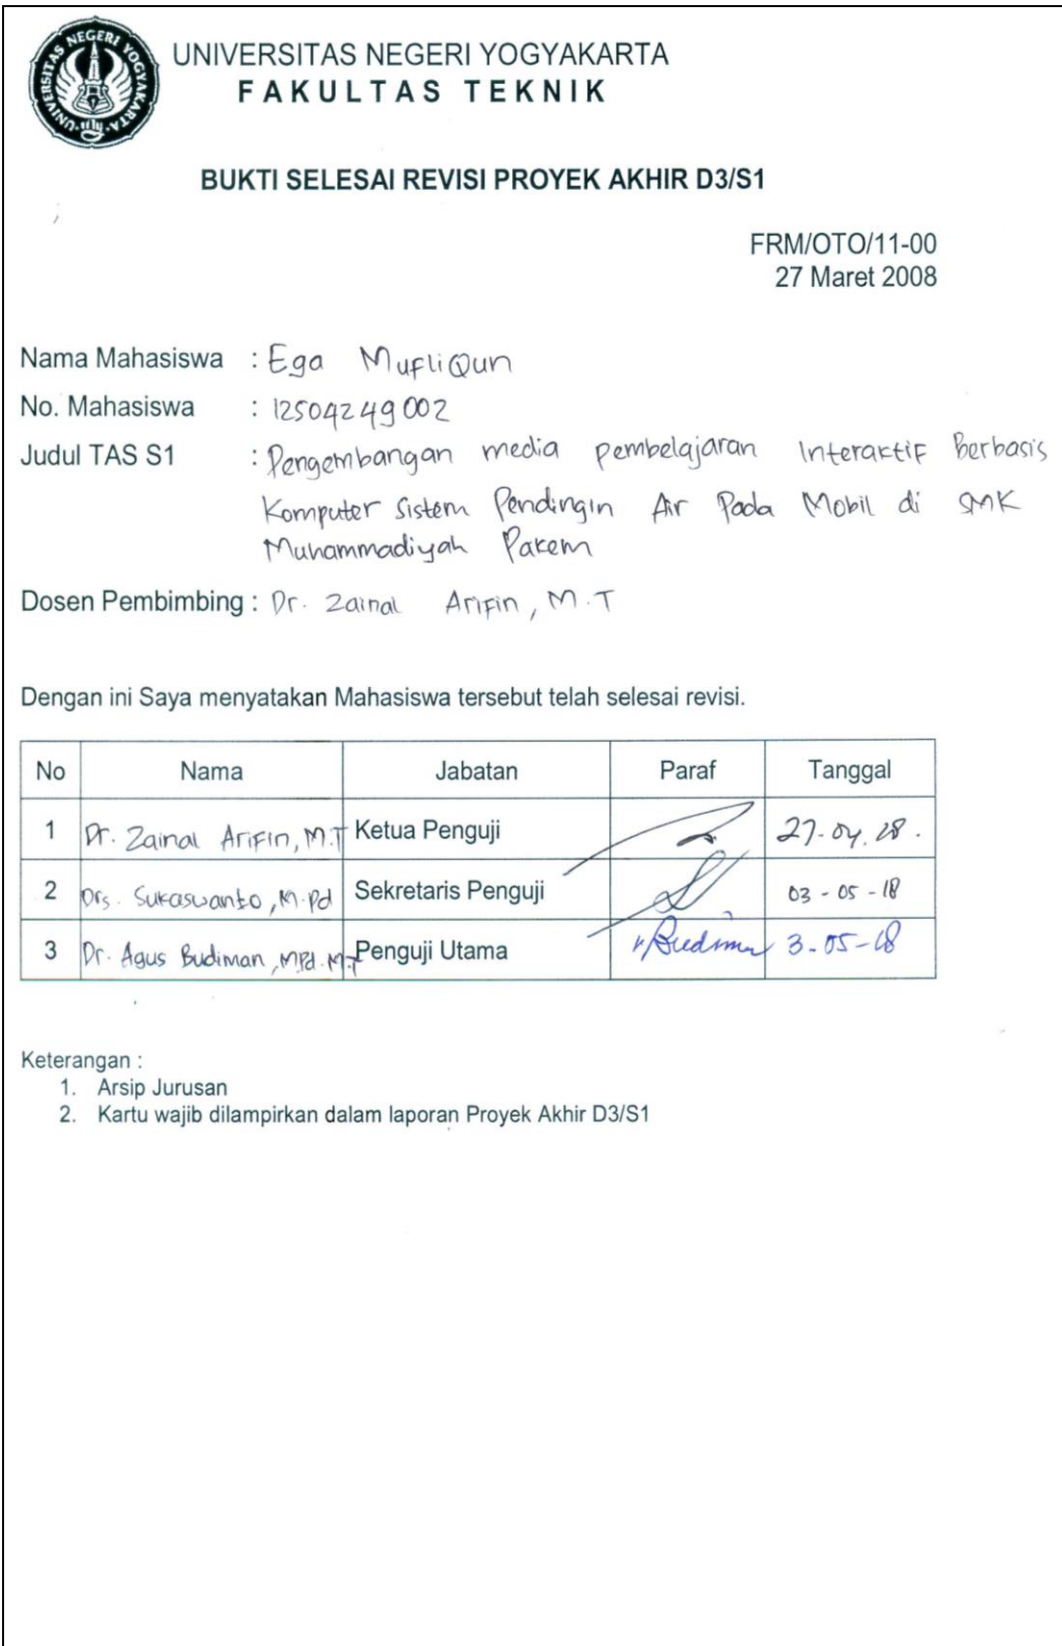 UNIVERSITAS NEGERI YOGYAKARTA
UNIVERSITAS NEGERI YOGYAKARTA
FAKULTAS TEKNIK
BUKTI SELESAI REVISI PROYEK AKHIR D3/S1
FRM/OTO/11-00
27 Maret 2008
Nama Mahasiswa : Ega Mufliqun
No. Mahasiswa : 12504249002
Judul TAS S1 : Pengembangan media pembelajaran Interaktif Berbasis
Komputer Sistem Pendingin Air Pada Mobil di SMK
Muhammadiyah Pakem
Dosen Pembimbing : Dr. Zainal Arifin, M.T
Dengan ini Saya menyatakan Mahasiswa tersebut telah selesai revisi.
No Nama Jabatan Paraf Tanggal
1 Dr. Zainal Arifin, M.T Ketua Penguji 27-04.18.
2 Drs. Sukaswanto, M.Pd Sekretaris Penguji 03-05-18
3 Dr. Agus Budiman, M.Pd. M.T Penguji Utama Budiman 3-05-18
Keterangan :
1. Arsip Jurusan
2. Kartu wajib dilampirkan dalam laporan Proyek Akhir D3/S1